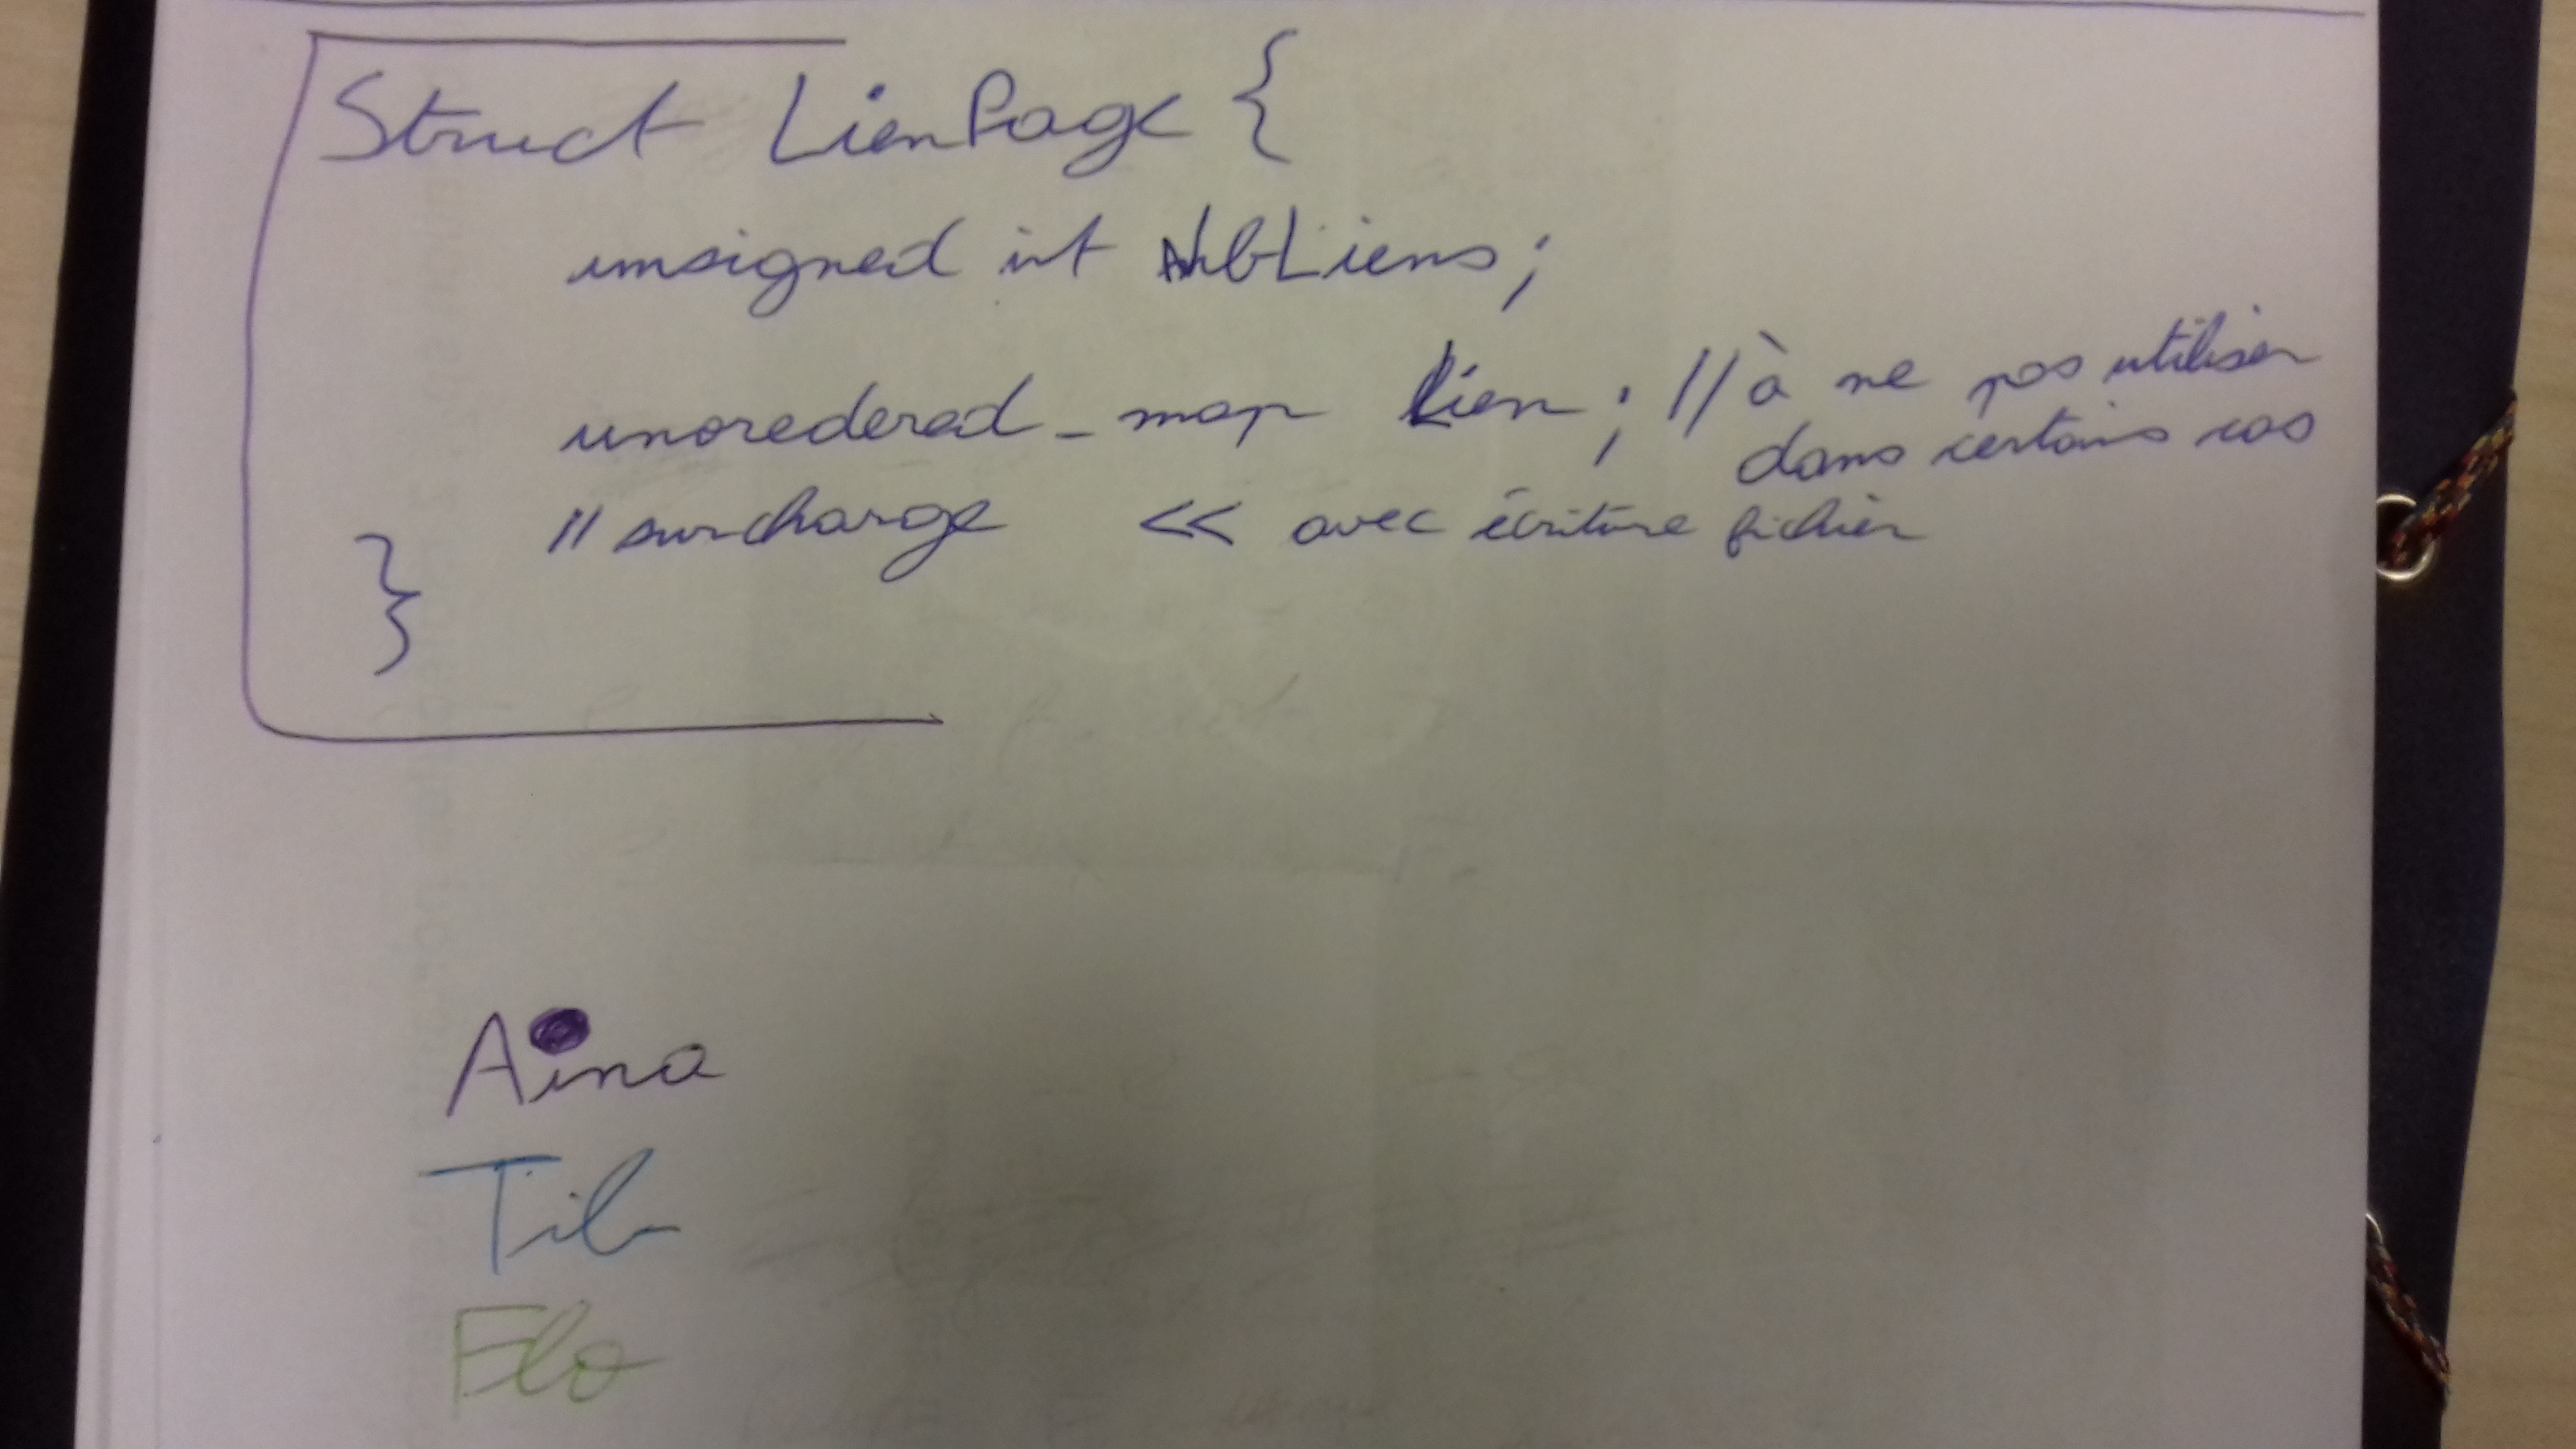 Struct LienPage {
unsigned int NbLiens;
unoredered_map Lien; // à ne pas utiliser
dans certains cas
// surcharge << avec écriture fichier
}
Aina
Tib
Flo